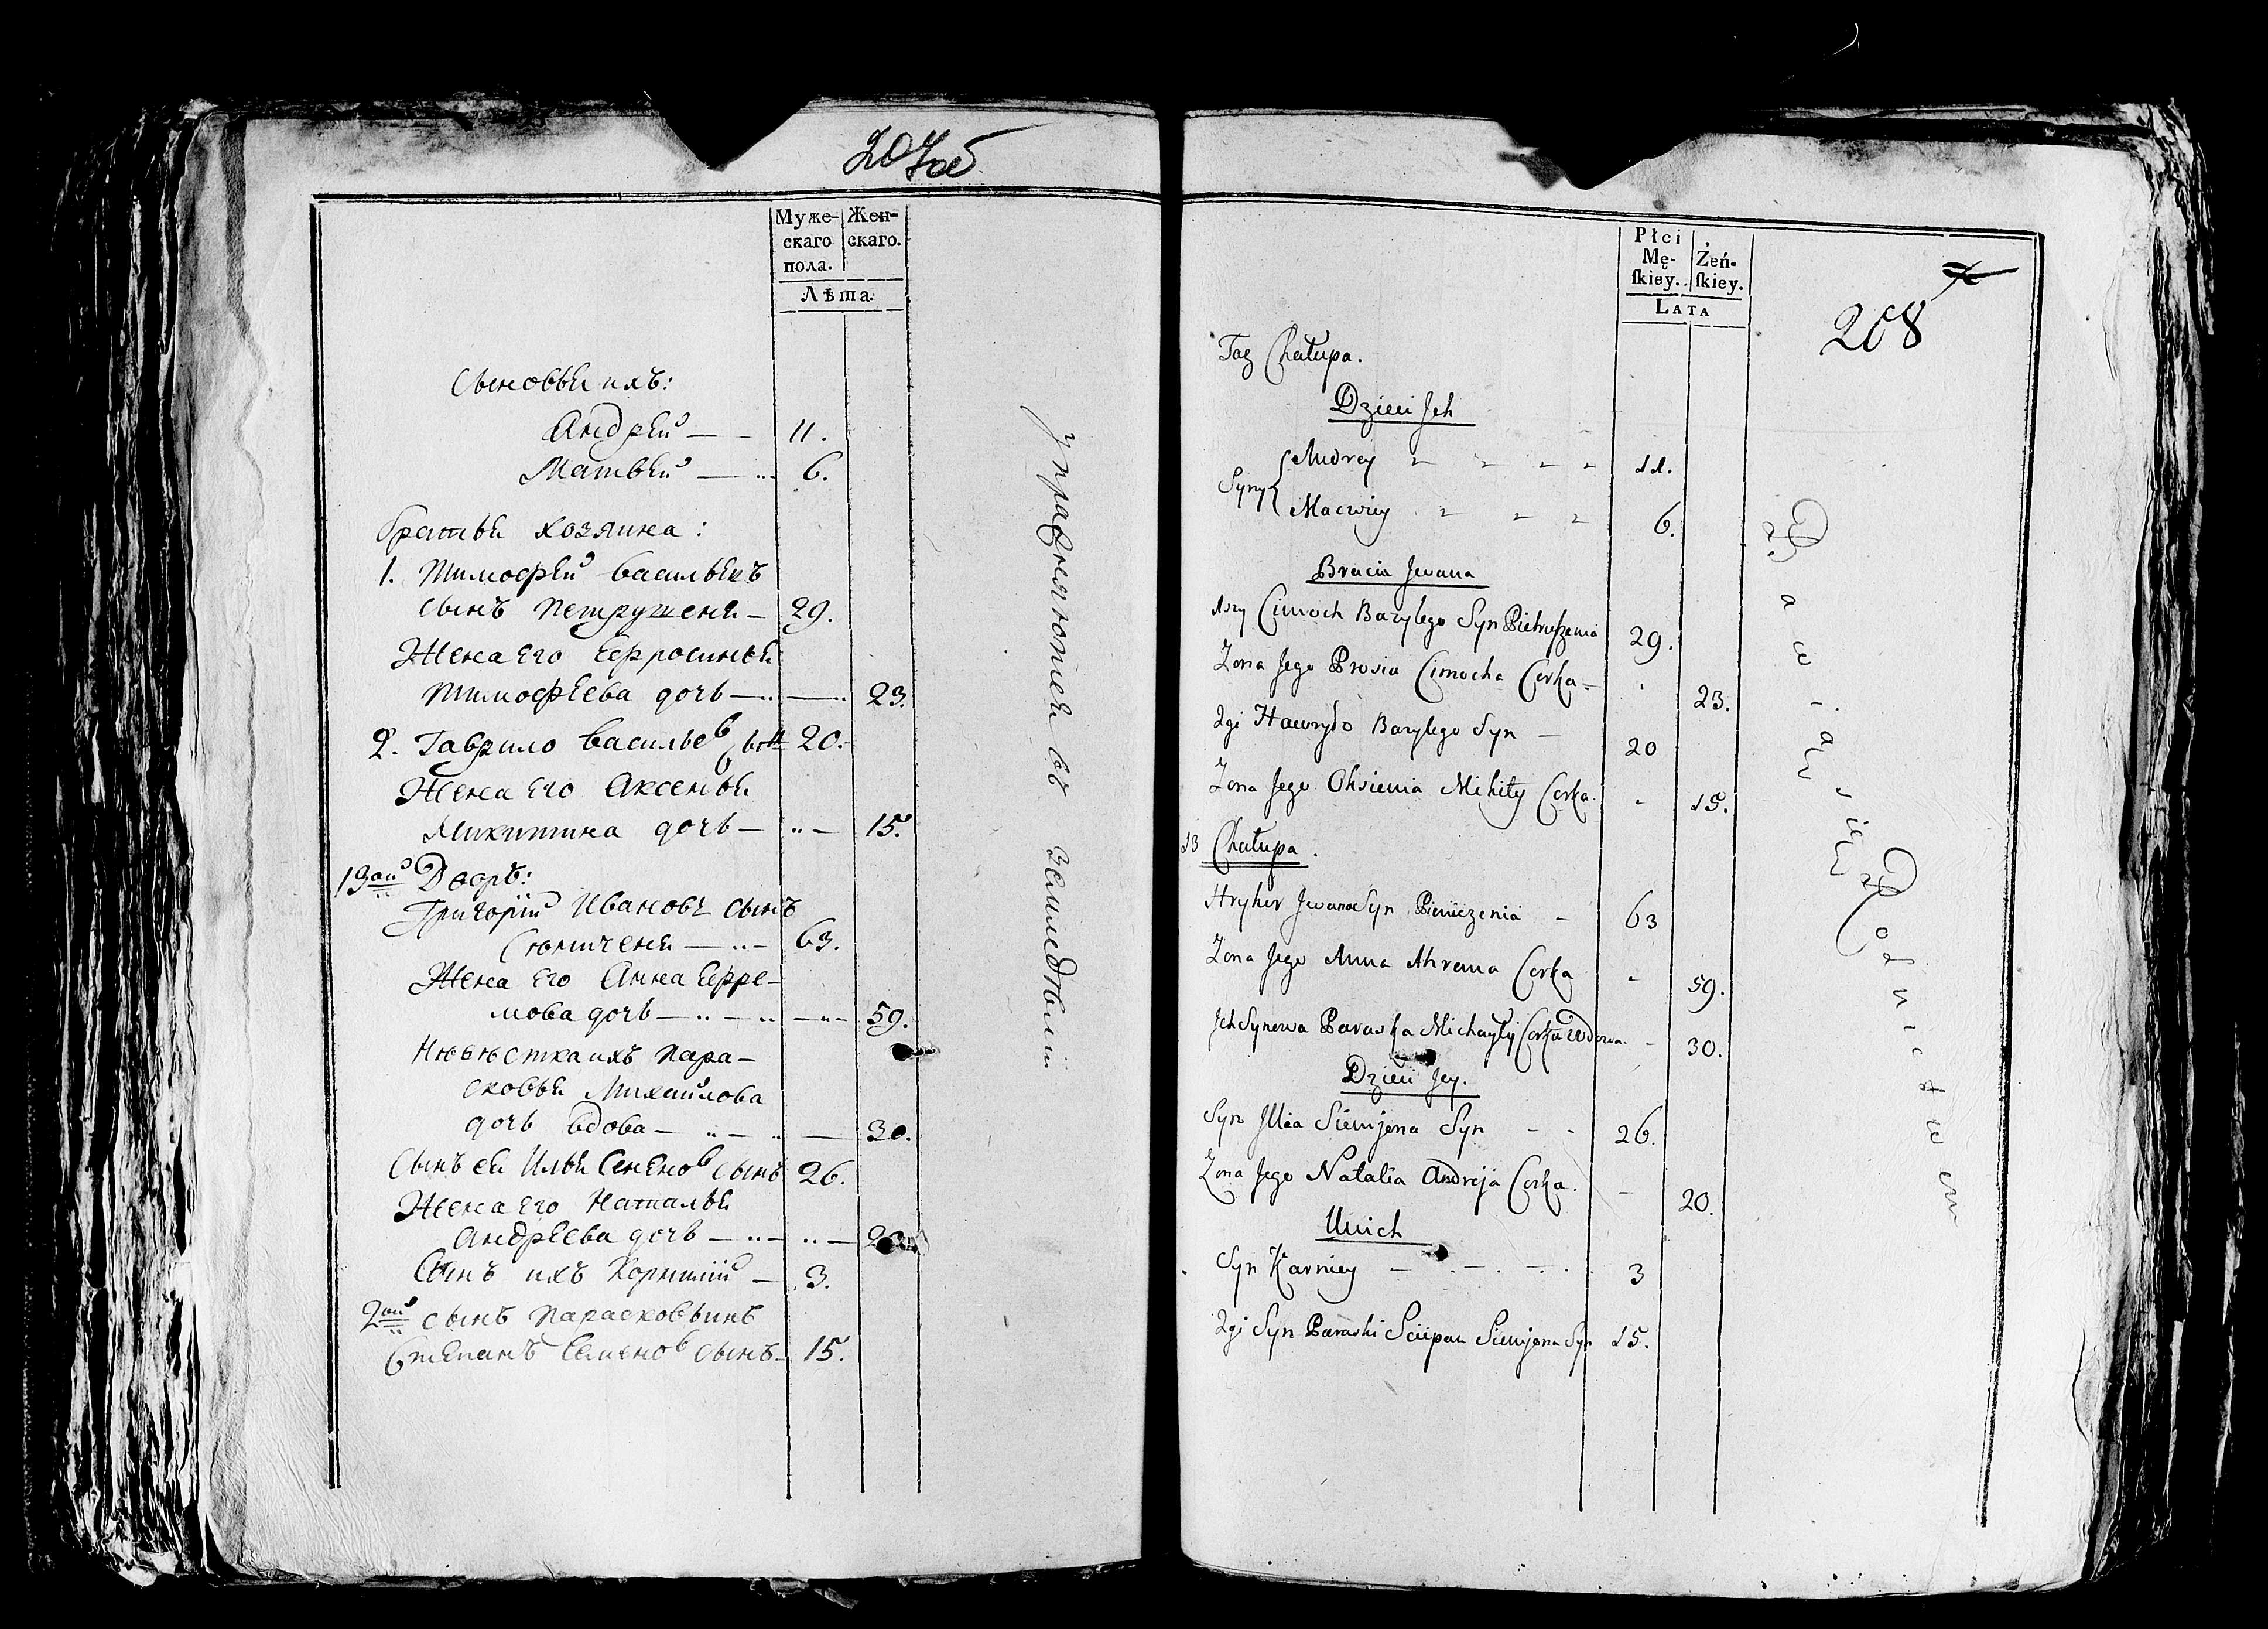 207об
Муже-
скаго
пола.
Жен-
скаго.
Лѣта.
Сыновья ихъ:
Андрей — — 11.
Матвѣй — 6.
Братья хозяина:
1. Тимофей васильевъ
сынъ Петрушеня — 29.
Жена Его Ефросинья
Тимофеева дочь — — 23.
2. Гаврило васильев 20.
Жена Его Аксенья
Микитина дочь — „ — 15.
13ой Дворъ:
Григорій Ивановъ сынъ
63.
Жена Его Анна Ефре-
мова дочь — — 59.
Нѣвѣстка ихъ Пара-
сковья Михайлова
дочь вдова — — 30.
Сынъ ея Илья Семенов сынъ 26.
Жена Его Наталья
Андреева дочь — „ —
Сынъ ихъ Корнилій — 3.
2ой сынъ Парасковьинъ
Степанъ Семенов сынъ — 15.
упражняются въ земледѣліи
Płci
Mę-
ſkiey.
Żeń-
ſkiey.
LATA
208
Taż Chałupa.
Dzieci Jch
Syny { Andrey 11.
Maciey 6.
Bracia Jwana
1szy Cimoch Bazylego Syn Pietruszenia 29.
Zona Jego Prosia Cimocha Corka — 23.
2gi Hawryło Bazylego Syn — 20
Zona Jego Oksienia Mikity Corka. 15.
13 Chałupa.
Hryhor Jwana Syn — 63
Zona Jego Anna Ahrema Corka 59.
Jch Synowa Paraska Michayły Corka Wdowa. — 30.
Dzieci Jey.
Syn Jllia Siemjona Syn — 26.
Zona Jego Natalia Andreja Corka. — 20.
Unich
Syn Karniey — 3
2gi Syn Paraski Sciepan Siemjona Syn 15.
Bawią się Rolnictwem